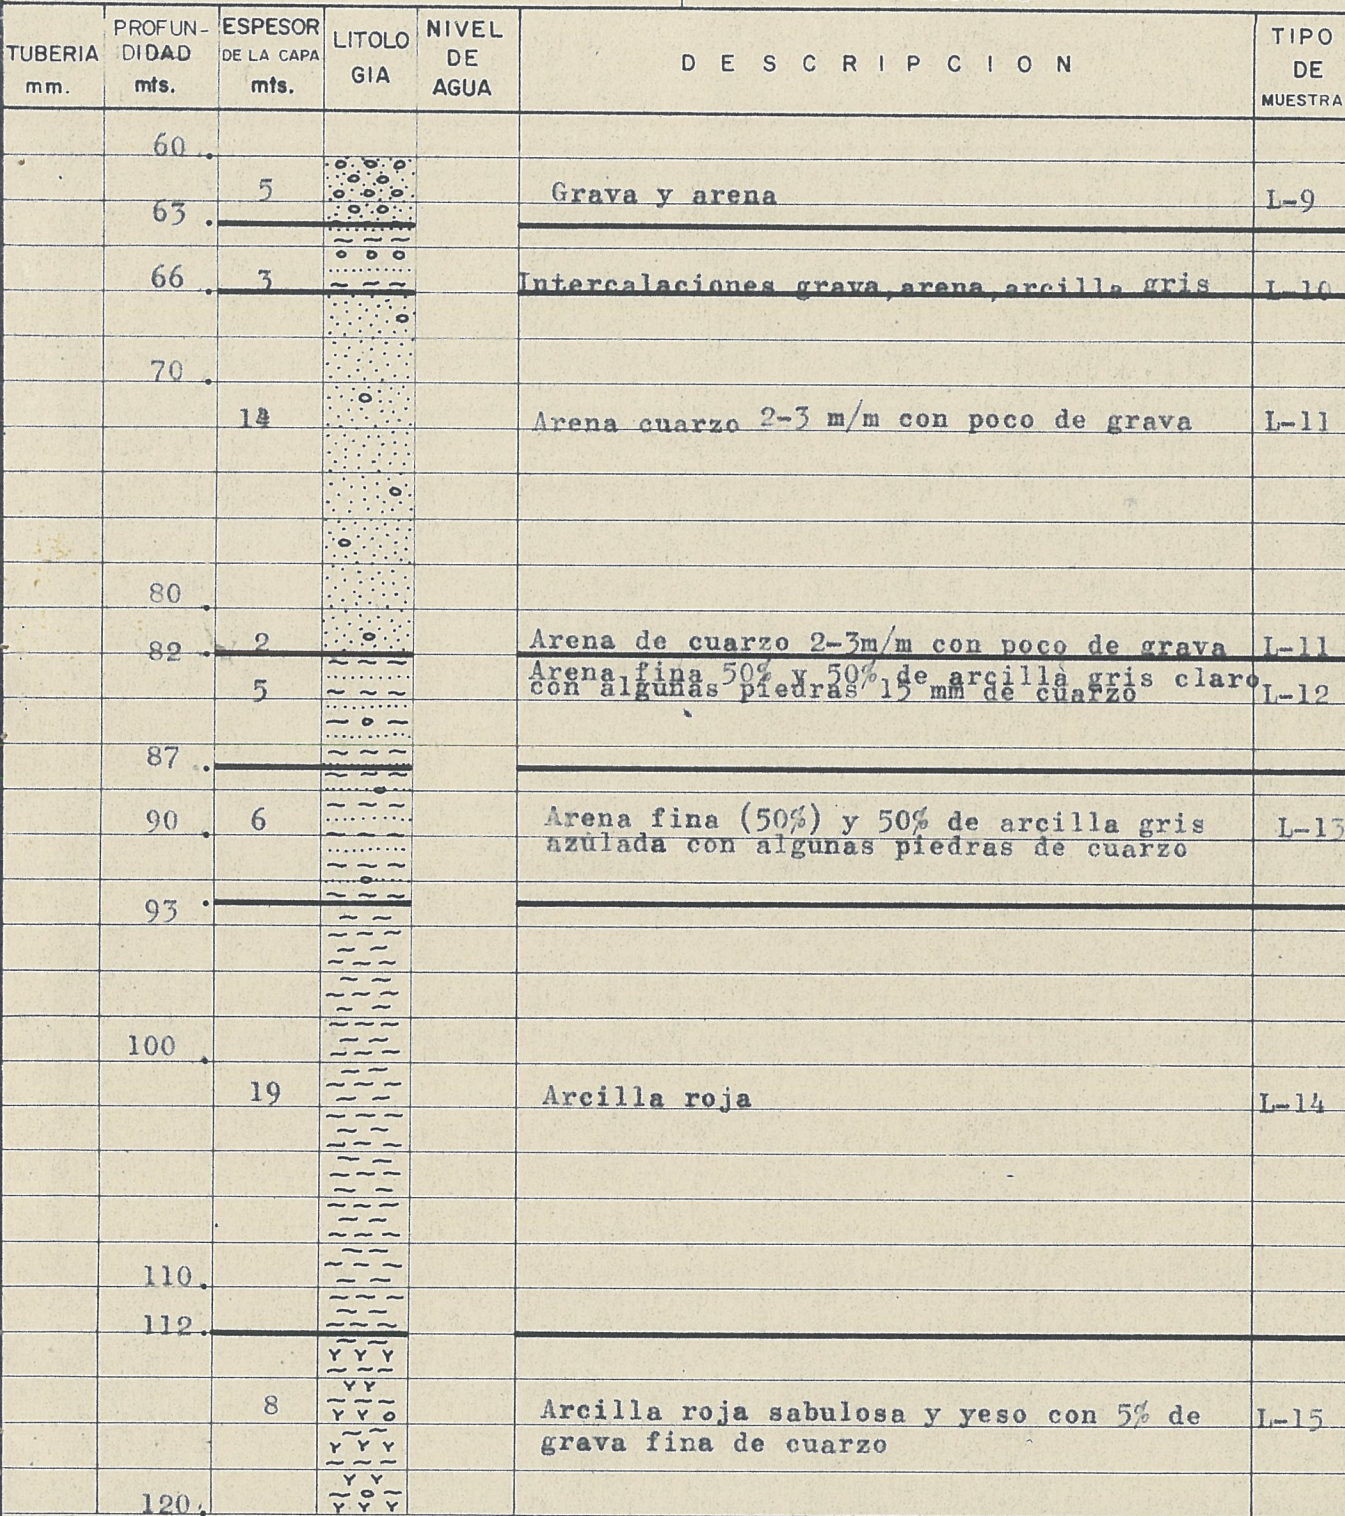 TUBERIA mm. PROFUN-DIDAD mts. ESPESOR DE LA CAPA mts. LITOLOGIA NIVEL DE AGUA DESCRIPCION TIPO DE MUESTRA
60
5 Grava y arena L-9
63
66 3 Intercalaciones grava,arena,arcilla gris L-10
70
14 Arena cuarzo 2-3 m/m con poco de grava L-11
80
82 2 Arena de cuarzo 2-3m/m con poco de grava L-11
Arena fina 50% y 50% de arcilla gris claro
5 con algunas piedras 15 mm de cuarzo L-12
87
90 6 Arena fina (50%) y 50% de arcilla gris L-13
azulada con algunas piedras de cuarzo
93
100
19 Arcilla roja L-14
110
112
8 Arcilla roja sabulosa y yeso con 5% de L-15
grava fina de cuarzo
120